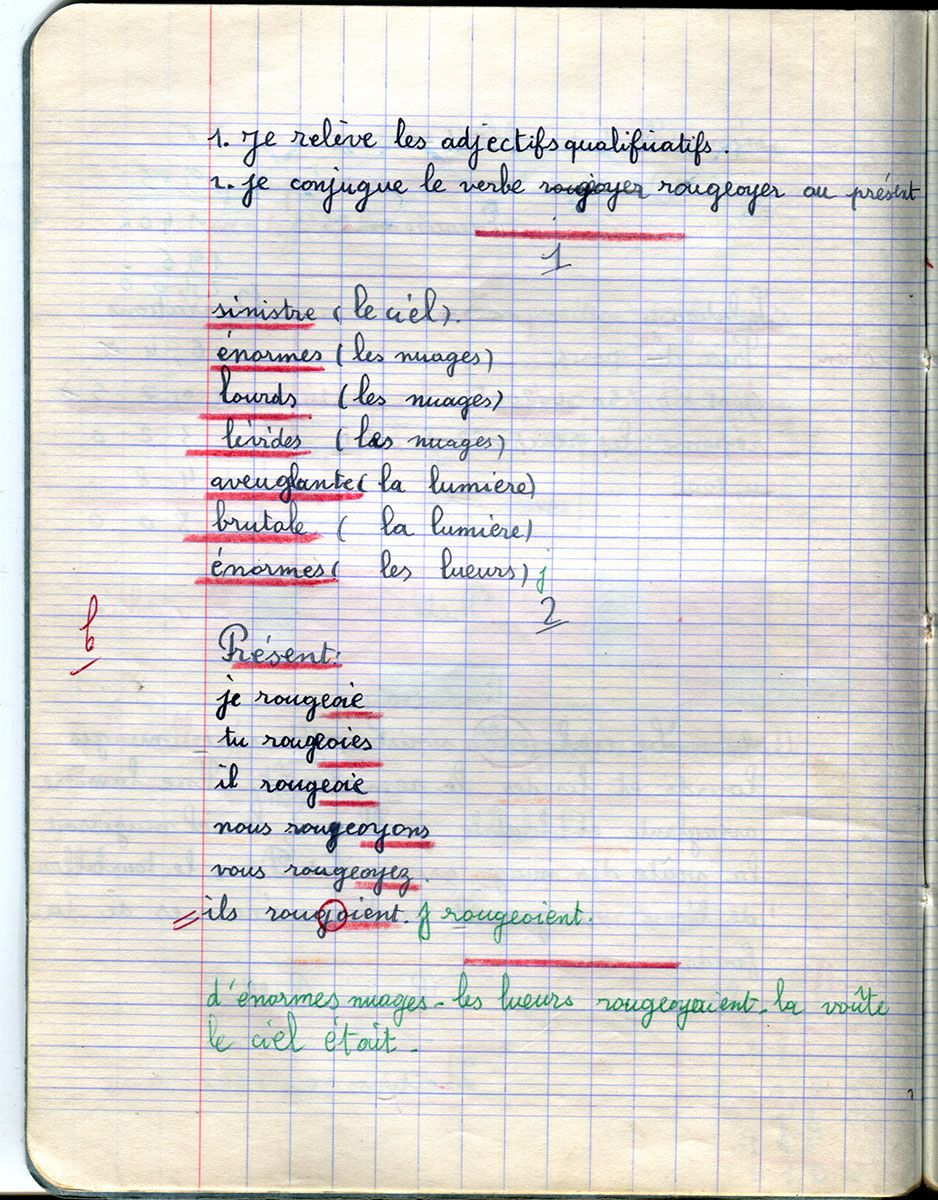 1. Je relève les adjectifs qualificatifs.
2. Je conjugue le verbe rougeoyer au présent
1
sinistre (le ciel).
énormes (les nuages)
lourds (les nuages)
livides (les nuages)
aveuglante (la lumière)
brutale (la lumière)
énormes (les lueurs) j
2
b
Présent:
je rougeoie
tu rougeoies
il rougeoie
nous rougeoyons
vous rougeoyez.
= ils roujoient. f rougeoient.
d'énormes nuages - les lueurs rougeoyaient - la voûte
le ciel était -